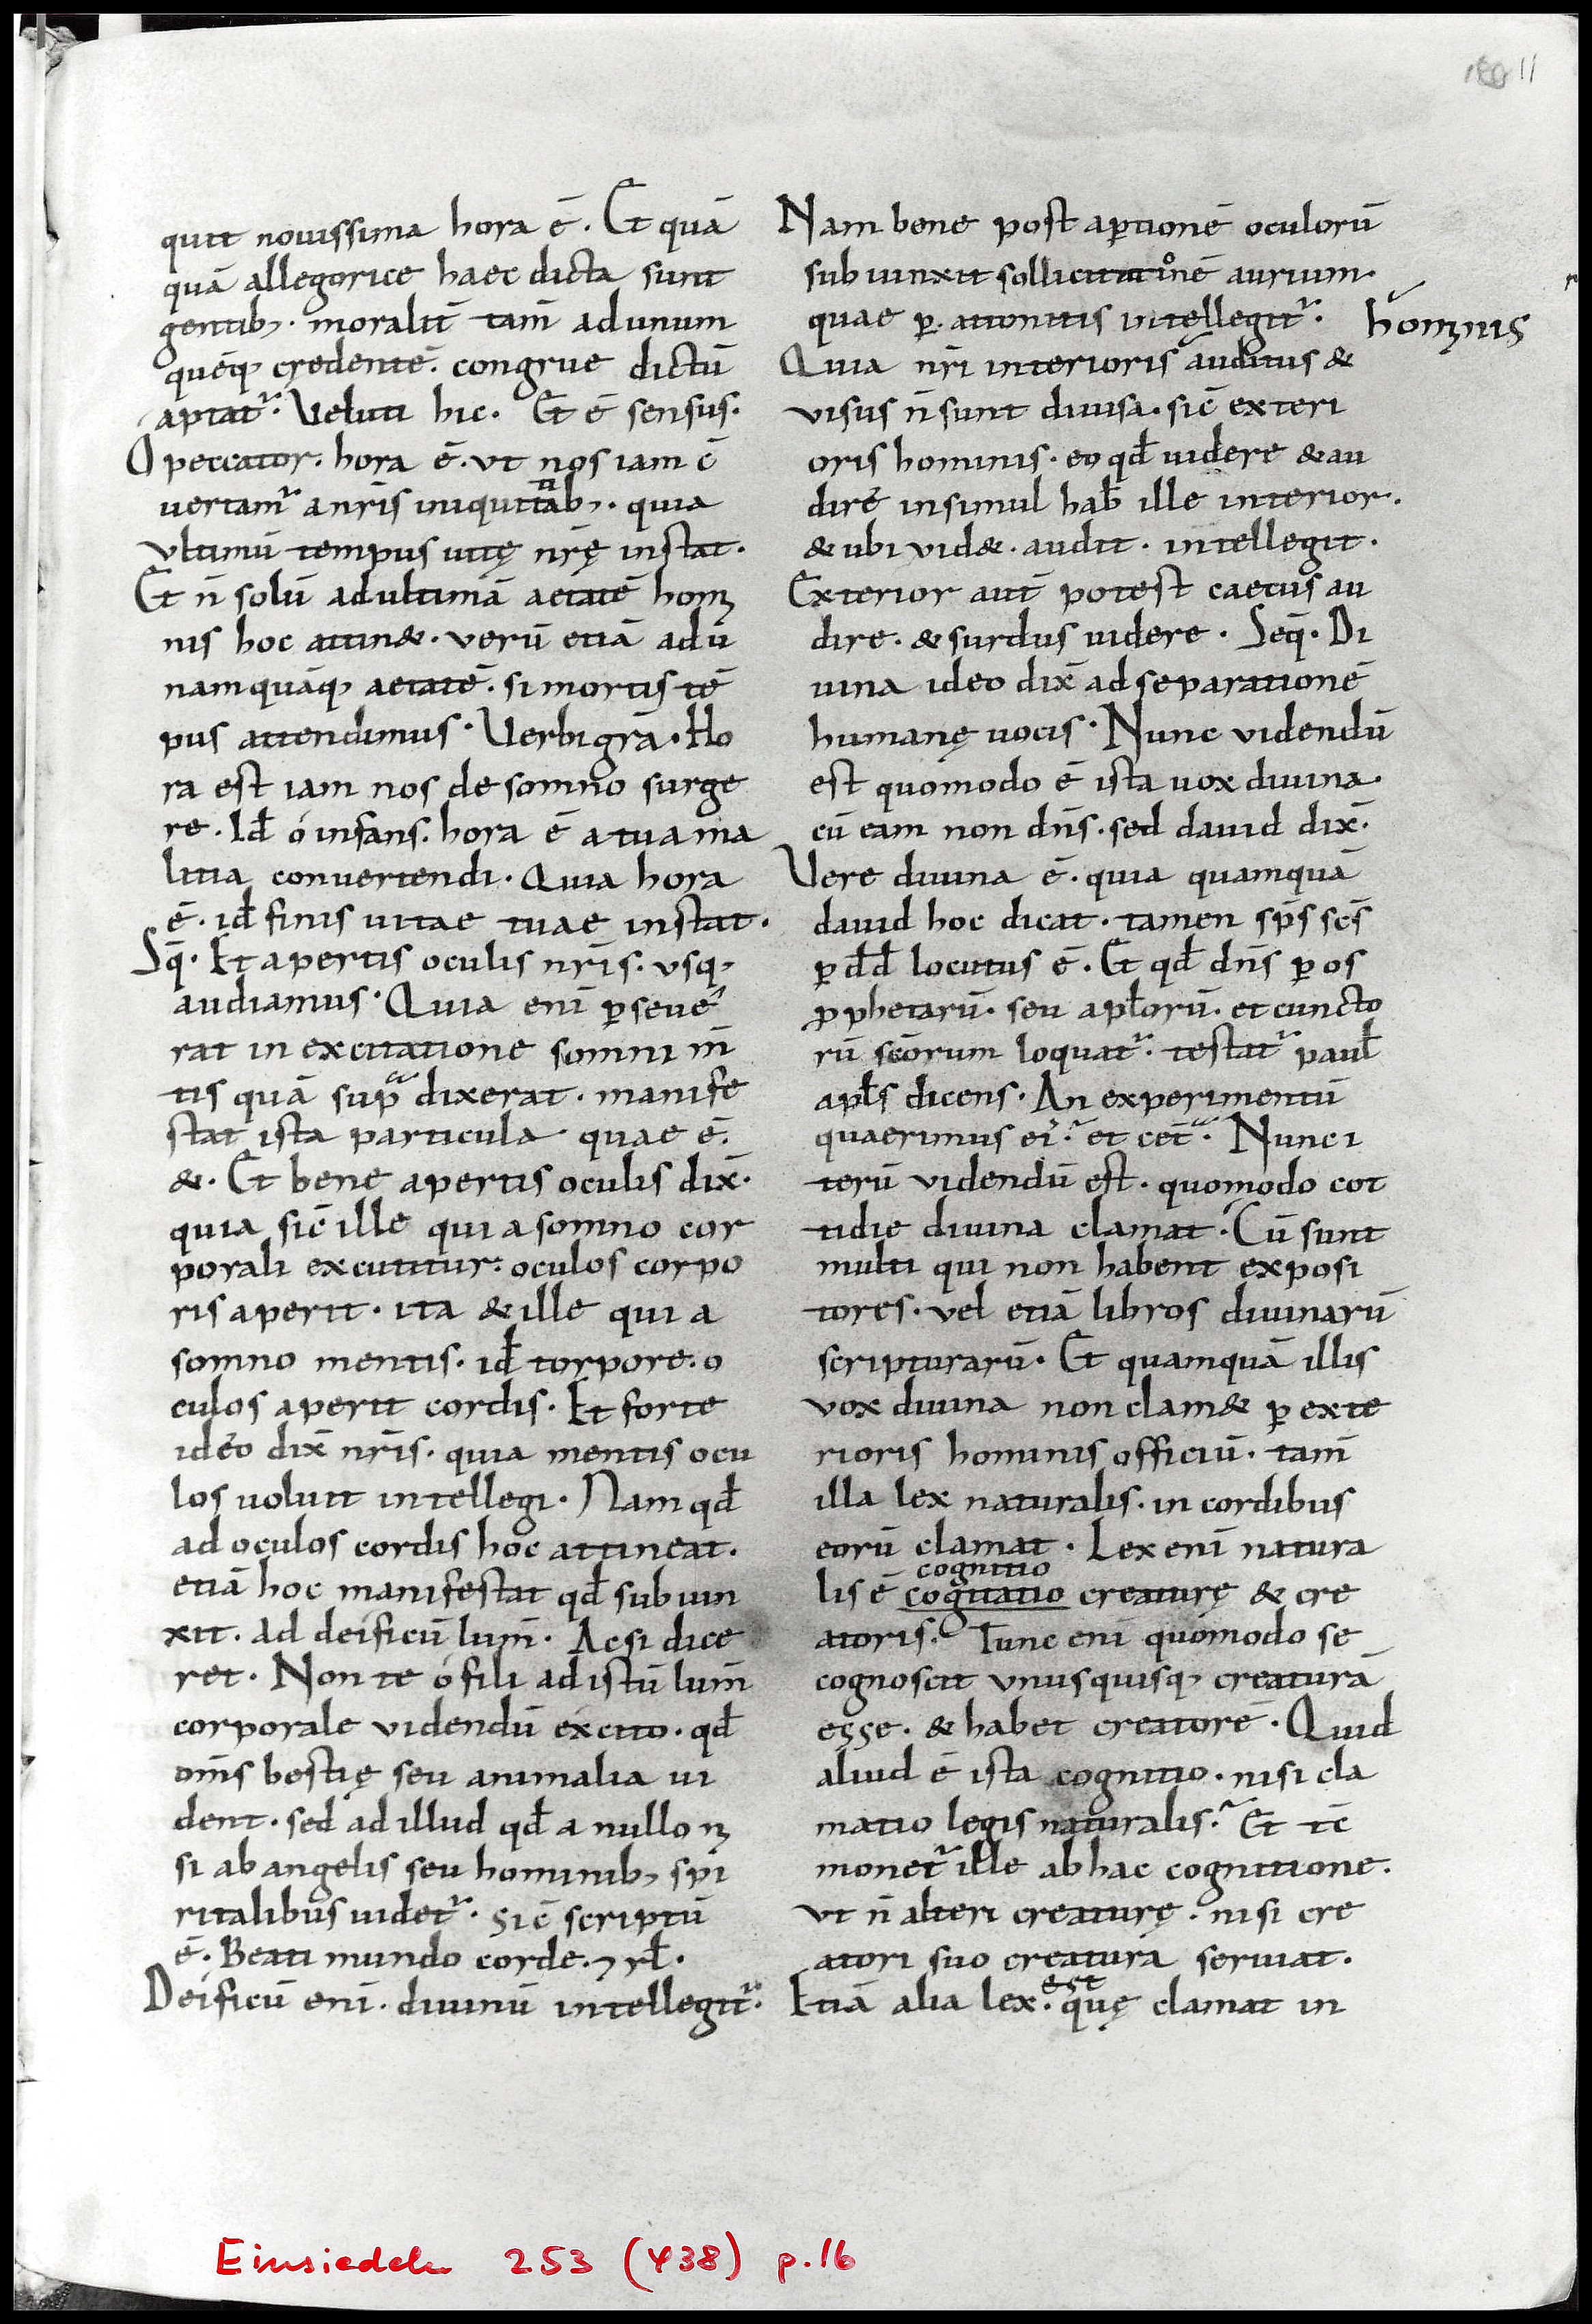 11
quit nouissima hora ē. Et quā
quā allegorice haec dicta sunt
gentib; moralit̄ tam̄ ad unum
quēq; credentē. congrue dictū
aptat᷑. Veluti hic. Et ē sensus.
O peccator. hora ē. ut nos iam c̄
uertam᷑ a nr̄is iniquitatib;. quia
ultimū tempus uitę nr̄ę instat.
Et n̄ solū ad ultimā aetatē homi
nis hoc attin&. verū etiā ad ū
nam quāq; aetatē. si mortis tē
pus attendimus. Verbi grā. Ho
ra est iam nos de somno surge
re. Id̄ ó infans. hora ē a tua ma
litia conuertendi. Quia hora
ē. id̄ finis uitae tuae instat.
Sq̄. Et apertis oculis nr̄is. usq;
audiamus. Quia enī ꝑseue
rat in excitatione somni m̄
tis quā sup̄ dixerat. manife
stat ista particula quae ē.
&. Et bene apertis oculis dix̄.
quia sic̄ ille qui a somno cor
porali excutitur. oculos corpo
ris aperit. ita & ille qui a
somno mentis. id̄ torpore. o
culos aperit cordis. Et forte
ideo dix̄ nr̄is. quia mentis ocu
los uoluit intellegi. Nam qd̄
ad oculos cordis hoc attineat.
etiā hoc manifestat qd̄ subiun
xit. ad deificū lum̄. Ac si dice
ret. Non te ó fili ad istū lum̄
corporale videndū excito. qd̄
om̄s bestię seu animalia ui
dent. sed ad illud qd̄ a nullo ni
si ab angelis seu hominib; sp̄i
ritalibus uidet᷑. Sic̄ scriptū
ē. Beati mundo corde. ⁊ rl̄.
Deificū enī. diuinū intellegit᷑.
Nam bene post aꝑtionē oculorū
subiunxit sollicitationē aurium.
quae ꝑ. attonitis intellegit᷑.
hominis
Quia nr̄i interioris auditus &
visus n̄ sunt diuisa. sic̄ exteri
oris hominis. eo qd̄ uidere & au
dire insimul hab̄ ille interior.
& ubi vid&. audit. intellegit.
Exterior aut̄ potest caecus au
dire. & surdus uidere. Seq̄. Di
uina ideo dix̄ ad separationē
humanę uocis. Nunc videndū
est quomodo ē ista uox diuina.
cū eam non dn̄s. sed dauid dix̄.
Vere diuina ē. quia quamquā
dauid hoc dicat. tamen sp̄s sc̄s
ꝑ dd̄ locutus ē. Et qd̄ dn̄s ꝑ os
ꝓphetarū. seu apl̄orū. et cuncto
rū sc̄orum loquat᷑. testat᷑ paul̄
apl̄s dicens. An experimentū
quaerimus ei᷑. et cet̄. Nunc i
terū videndū est. quomodo cot
tidie diuina clamat. Cū sunt
multi qui non habent exposi
tores. vel etiā libros diuinarū
scripturarū. Et quamquā illis
vox diuina non clam& ꝑ exte
rioris hominis officiū. tam̄
illa lex naturalis. in cordibus
eorū clamat. Lex enī natura
cognitio
lis ē cogitatio creaturę & cre
atoris. Tunc enī quomodo se
cognoscit unusquisq; creaturā
esse. & habet creatorē. Quid
aliud ē ista cognitio. nisi cla
matio legis naturalis. Et tc̄
monet᷑ ille ab hac cognitione.
ut n̄ alteri creaturę. nisi cre
atori suo creatura seruiat.
est
Etiā alia lex. quę clamat in
Einsiedeln 253 (438) p.16